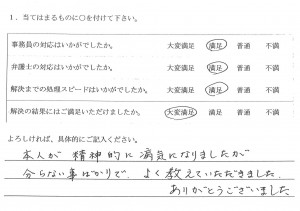 1．当てはまるものに○を付けて下さい。
事務員の対応はいかがでしたか。 大変満足 満足 普通 不満
弁護士の対応はいかがでしたか。 大変満足 満足 普通 不満
解決までの処理スピードはいかがでしたか。 大変満足 満足 普通 不満
解決の結果にはご満足いただけましたか。 大変満足 満足 普通 不満
よろしければ、具体的にご記入ください。
本人が 精神的に 病気になりましたが
分らない事ばかりで、よく教えていただきました
ありがとうございました